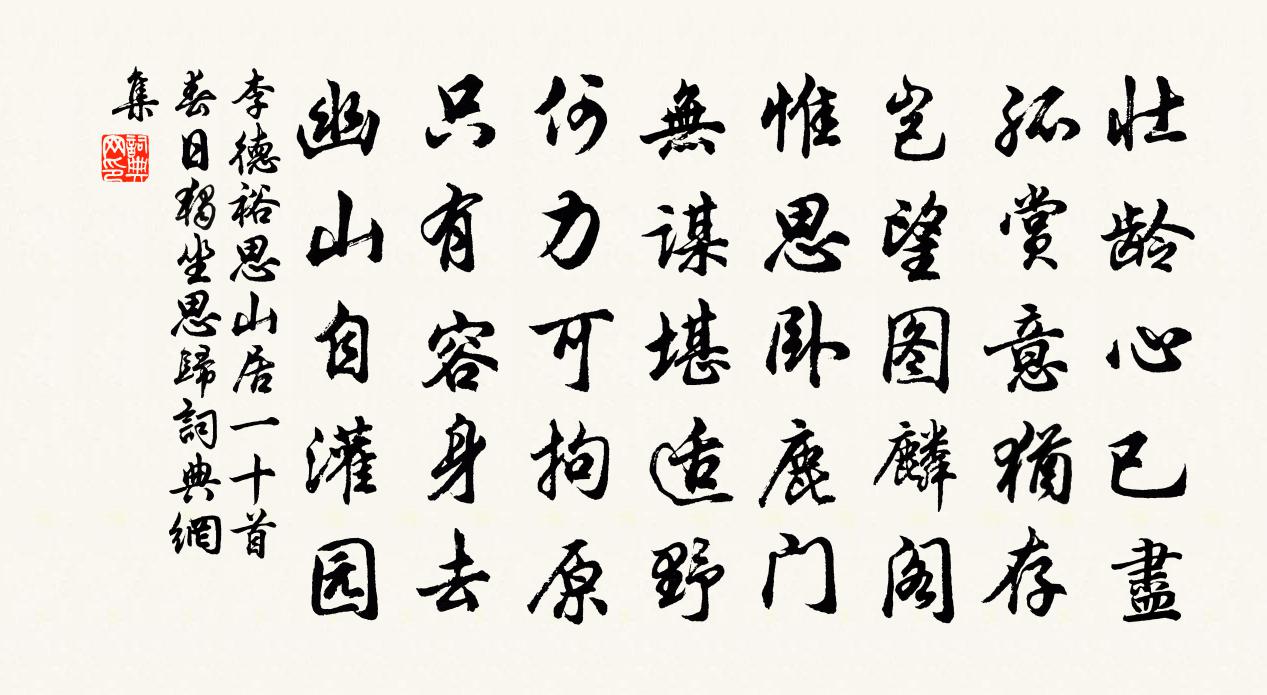 壮龄心已盡
孤赏意犹存
岂望图麟阁
惟思卧鹿门
無谋堪适野
何力可拘原
只有容身去
幽山自灌园
李德裕思山居一十首
春日独坐思歸詞典網
集
詞典網印